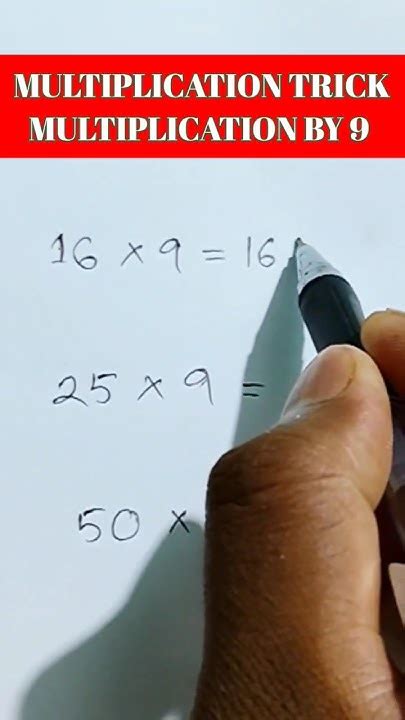 MULTIPLICATION TRICK
MULTIPLICATION BY 9
16 × 9 = 16
25 × 9 =
50 ×